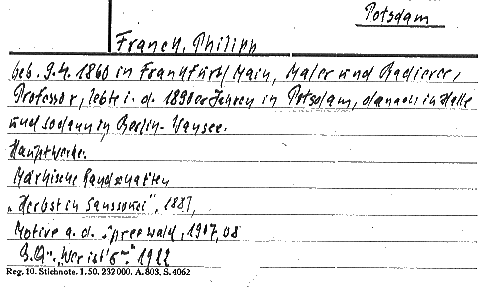 Potsdam
Franck, Philipp
geb. 9.4. 1860 in Frankfurt/Main, Maler und Radierer,
Professor, lebte i. d. 1890er Jahren in Potsdam, danach in Halle
und sodann in Berlin-Wansee.
Hauptwerke:
Märkische Landschaften
„Herbst in Sanssouci", 1887,
Motive a. d. Spreewald, 1907, 08
B.Q.: „Wer ist's" 1922
Reg. 10. Stichnote. 1. 50. 232 000. A. 803. S. 4062